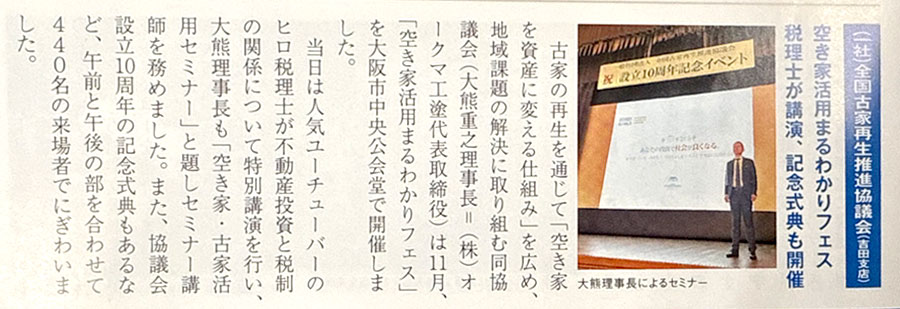 (一社)全国古家再生推進協議会(吉田支店)
空き家活用まるわかりフェス
税理士が講演、記念式典も開催
祝 設立10周年記念イベント
大熊理事長によるセミナー
古家の再生を通じて「空き家
を資産に変える仕組み」を広め、
地域課題の解決に取り組む同協
議会(大熊重之理事長=(株)オ
ークマ工塗代表取締役)は11月、
「空き家活用まるわかりフェス」
を大阪市中央公会堂で開催しま
した。
当日は人気ユーチューバーの
ヒロ税理士が不動産投資と税制
の関係について特別講演を行い、
大熊理事長も「空き家・古家活
用セミナー」と題しセミナー講
師を務めました。また、協議会
設立10周年の記念式典もあるな
ど、午前と午後の部を合わせて
440名の来場者でにぎわいま
した。